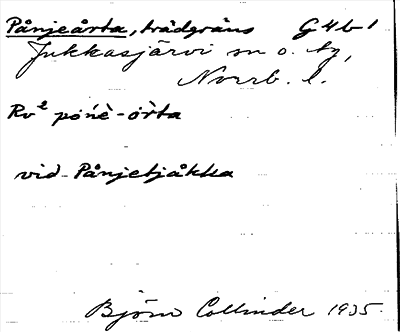 Pånjeårta, trädgräns G4b1
Jukkasjärvi sn o. tg,
Norrb. l.
Rv² pónè-òrta
vid Pånjetjåkka
Björn Collinder 1935.